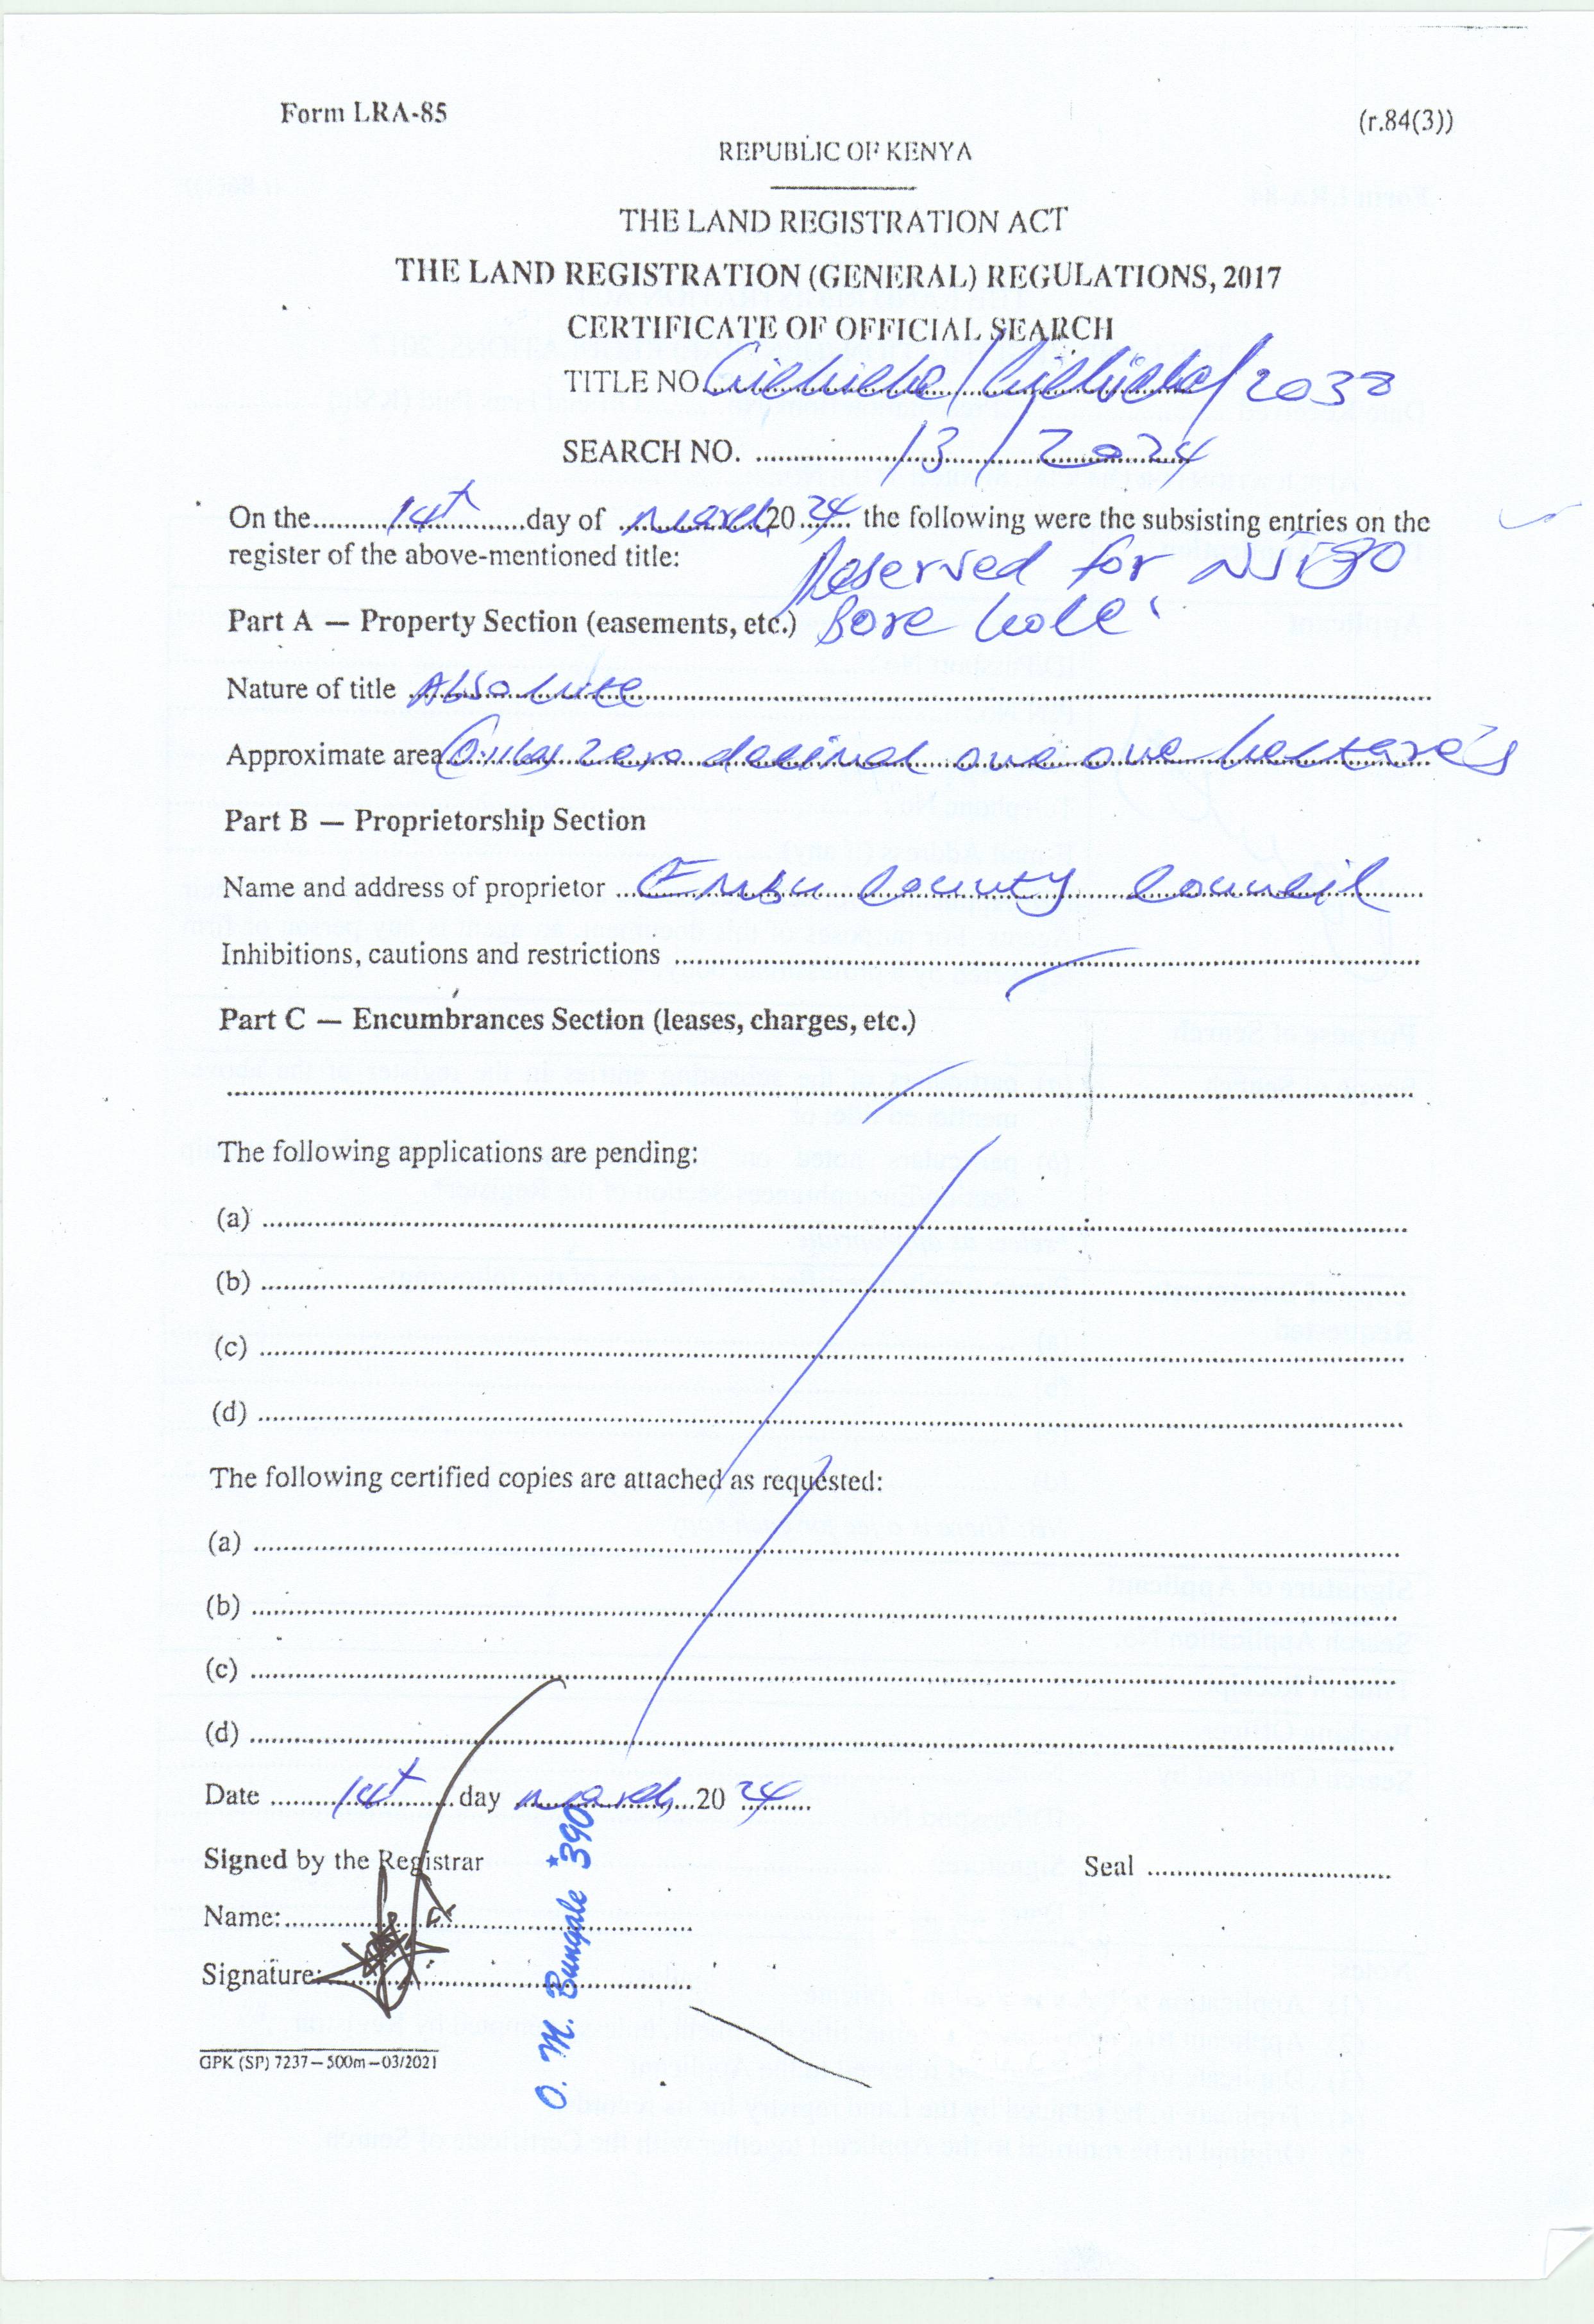 Form LRA-85
(r.84(3))
REPUBLIC OF KENYA
THE LAND REGISTRATION ACT
THE LAND REGISTRATION (GENERAL) REGULATIONS, 2017
CERTIFICATE OF OFFICIAL SEARCH
TITLE NO. / /
SEARCH NO. 13/2024
On the 14th day of march 20 24 the following were the subsisting entries on the
register of the above-mentioned title:
Reserved for
Part A — Property Section (easements, etc.) Bore hole
Nature of title Absolute
Approximate area zero decimal one one hectares
Part B — Proprietorship Section
Name and address of proprietor Embu County Council
Inhibitions, cautions and restrictions
Part C — Encumbrances Section (leases, charges, etc.)
The following applications are pending:
(a)
(b)
(c)
(d)
The following certified copies are attached as requested:
(a)
(b)
(c)
(d)
Date 14th day march 20 24
Signed by the Registrar
Seal
Name:
Signature:
O. M. Bungale *390
GPK (SP) 7237—500m—03/2021